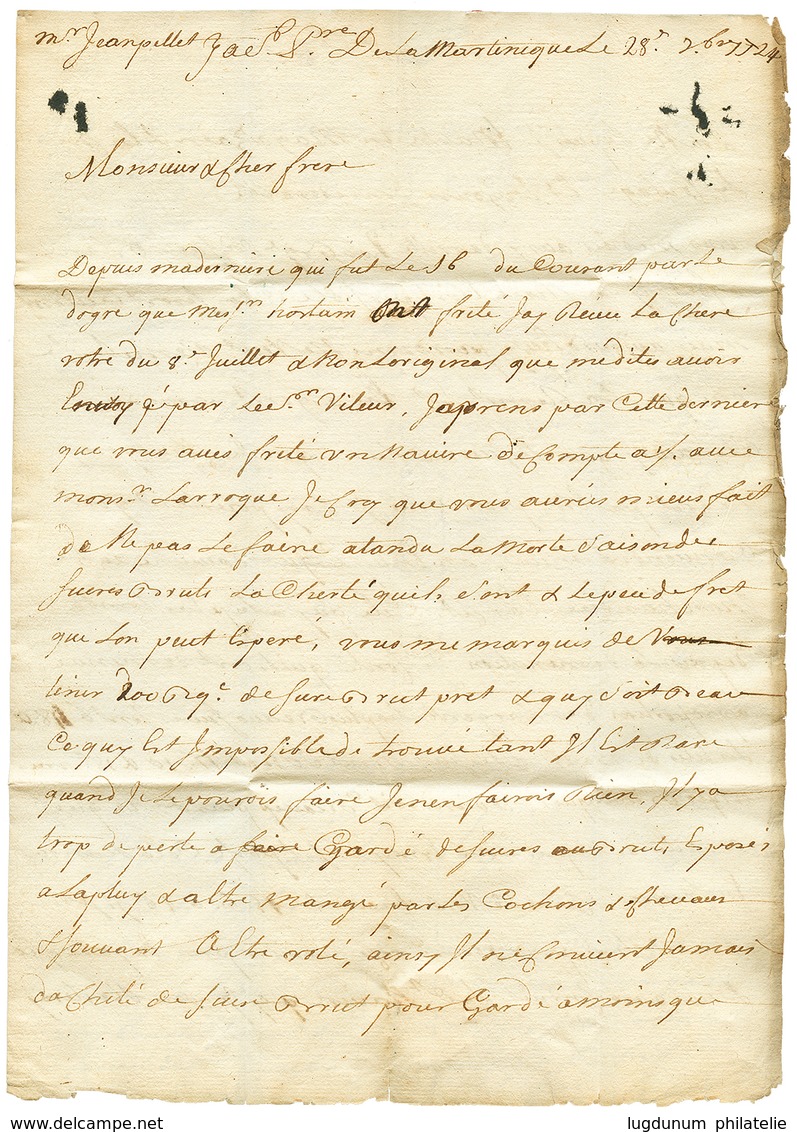 mr Jeanpellet De La Martinique Le 28e 7bre 1724
Monsieur & Cher frere
Depuis maderniere qui fut Le 16 du Courant par Le
dogre que Messrs hortain ont freté Jay Receu La Chere
votre du 8e Juillet & Non Loriginal que medites avoir
Envoyé par Le Sr Vileur, Japrens par Cette derniere
que vous aviés freté un Navire de Compte a ½ avec
monsr Larroque Je Croy que vous auriés mieus fait
de Ne pas Le faire atandu La Morte Saison des
sucres Bruts La Cherté quils Sont & Le peu de fret
que Lon peut Esperé, vous me marqués de
tiner 200 Bques de sucre Brut pret & quy Soit Beau
Ce quy Est Impossible de trouvé tant Il Est Rare
quand Je Le pourois faire Je nen fairois Rien, Il y a
trop de perte a faire Gardé de sucres Bruts Exposés
a La pluy & a Etre mangé par Les Cochons & Chevaus
& souvant a Etre volé, ainsy Il ne Convient Jamais
da Cheté de sucre Brut pour Gardé amoins que
lugdunum philatelie